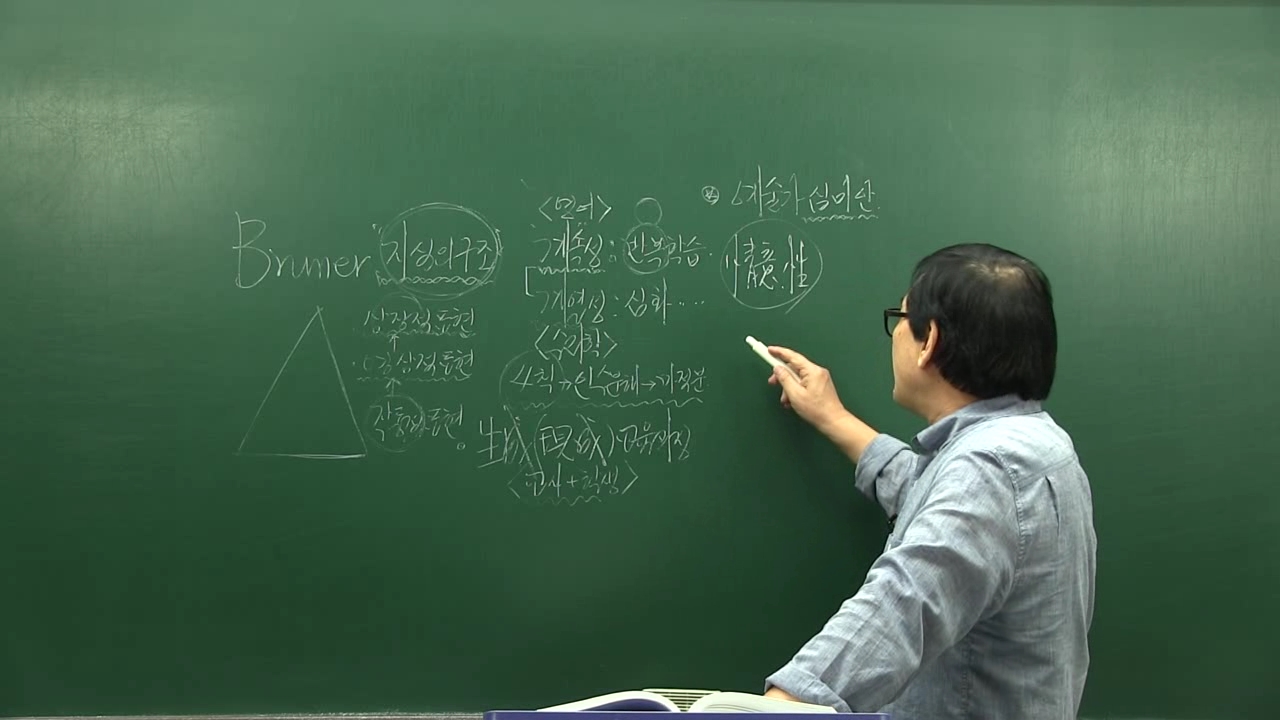 Bruner "지식의구조"
상징적 표현
영상적 표현
작동적 표현
<언어>
계속성 : 반복학습.
계열성 : 심화....
<수학>
4칙→인수분해→미적분
生成(現成)교육과정
<교사+학생>
예술가 심미안
性